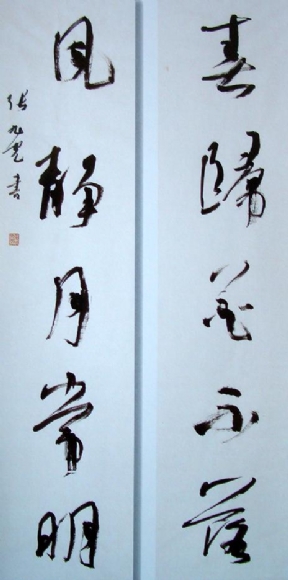 春歸花不落
風靜月常明
張九書